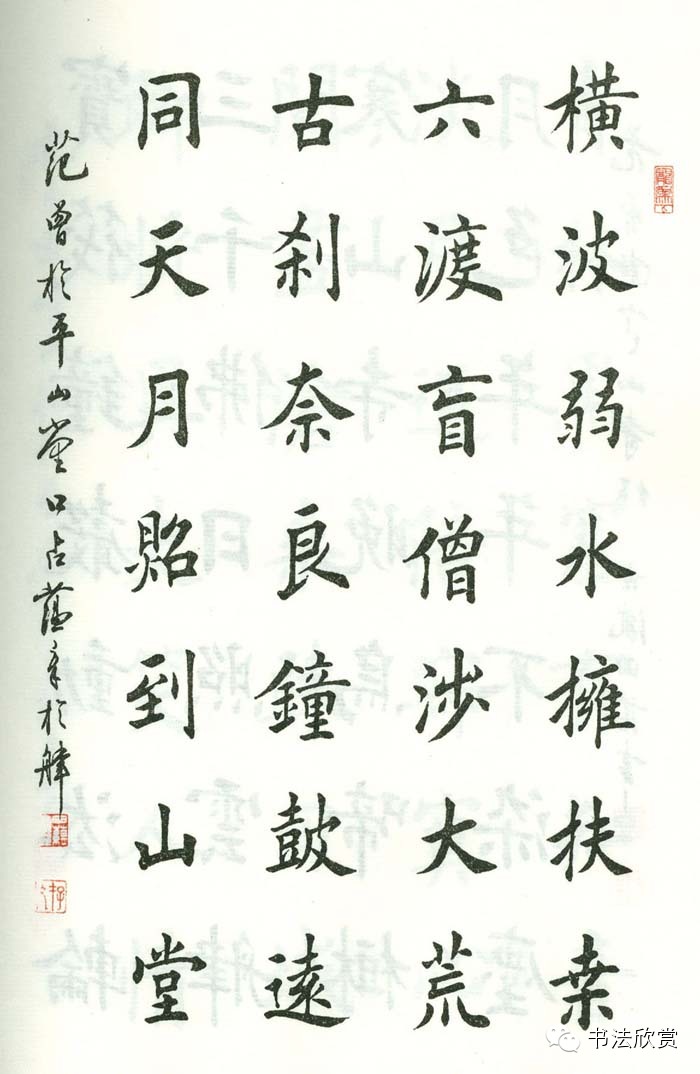 橫波弱水擁扶桒
六渡盲僧涉大荒
古刹奈良鐘皷遠
同天月照到山堂
范曾於平山堂口占
书法欣赏